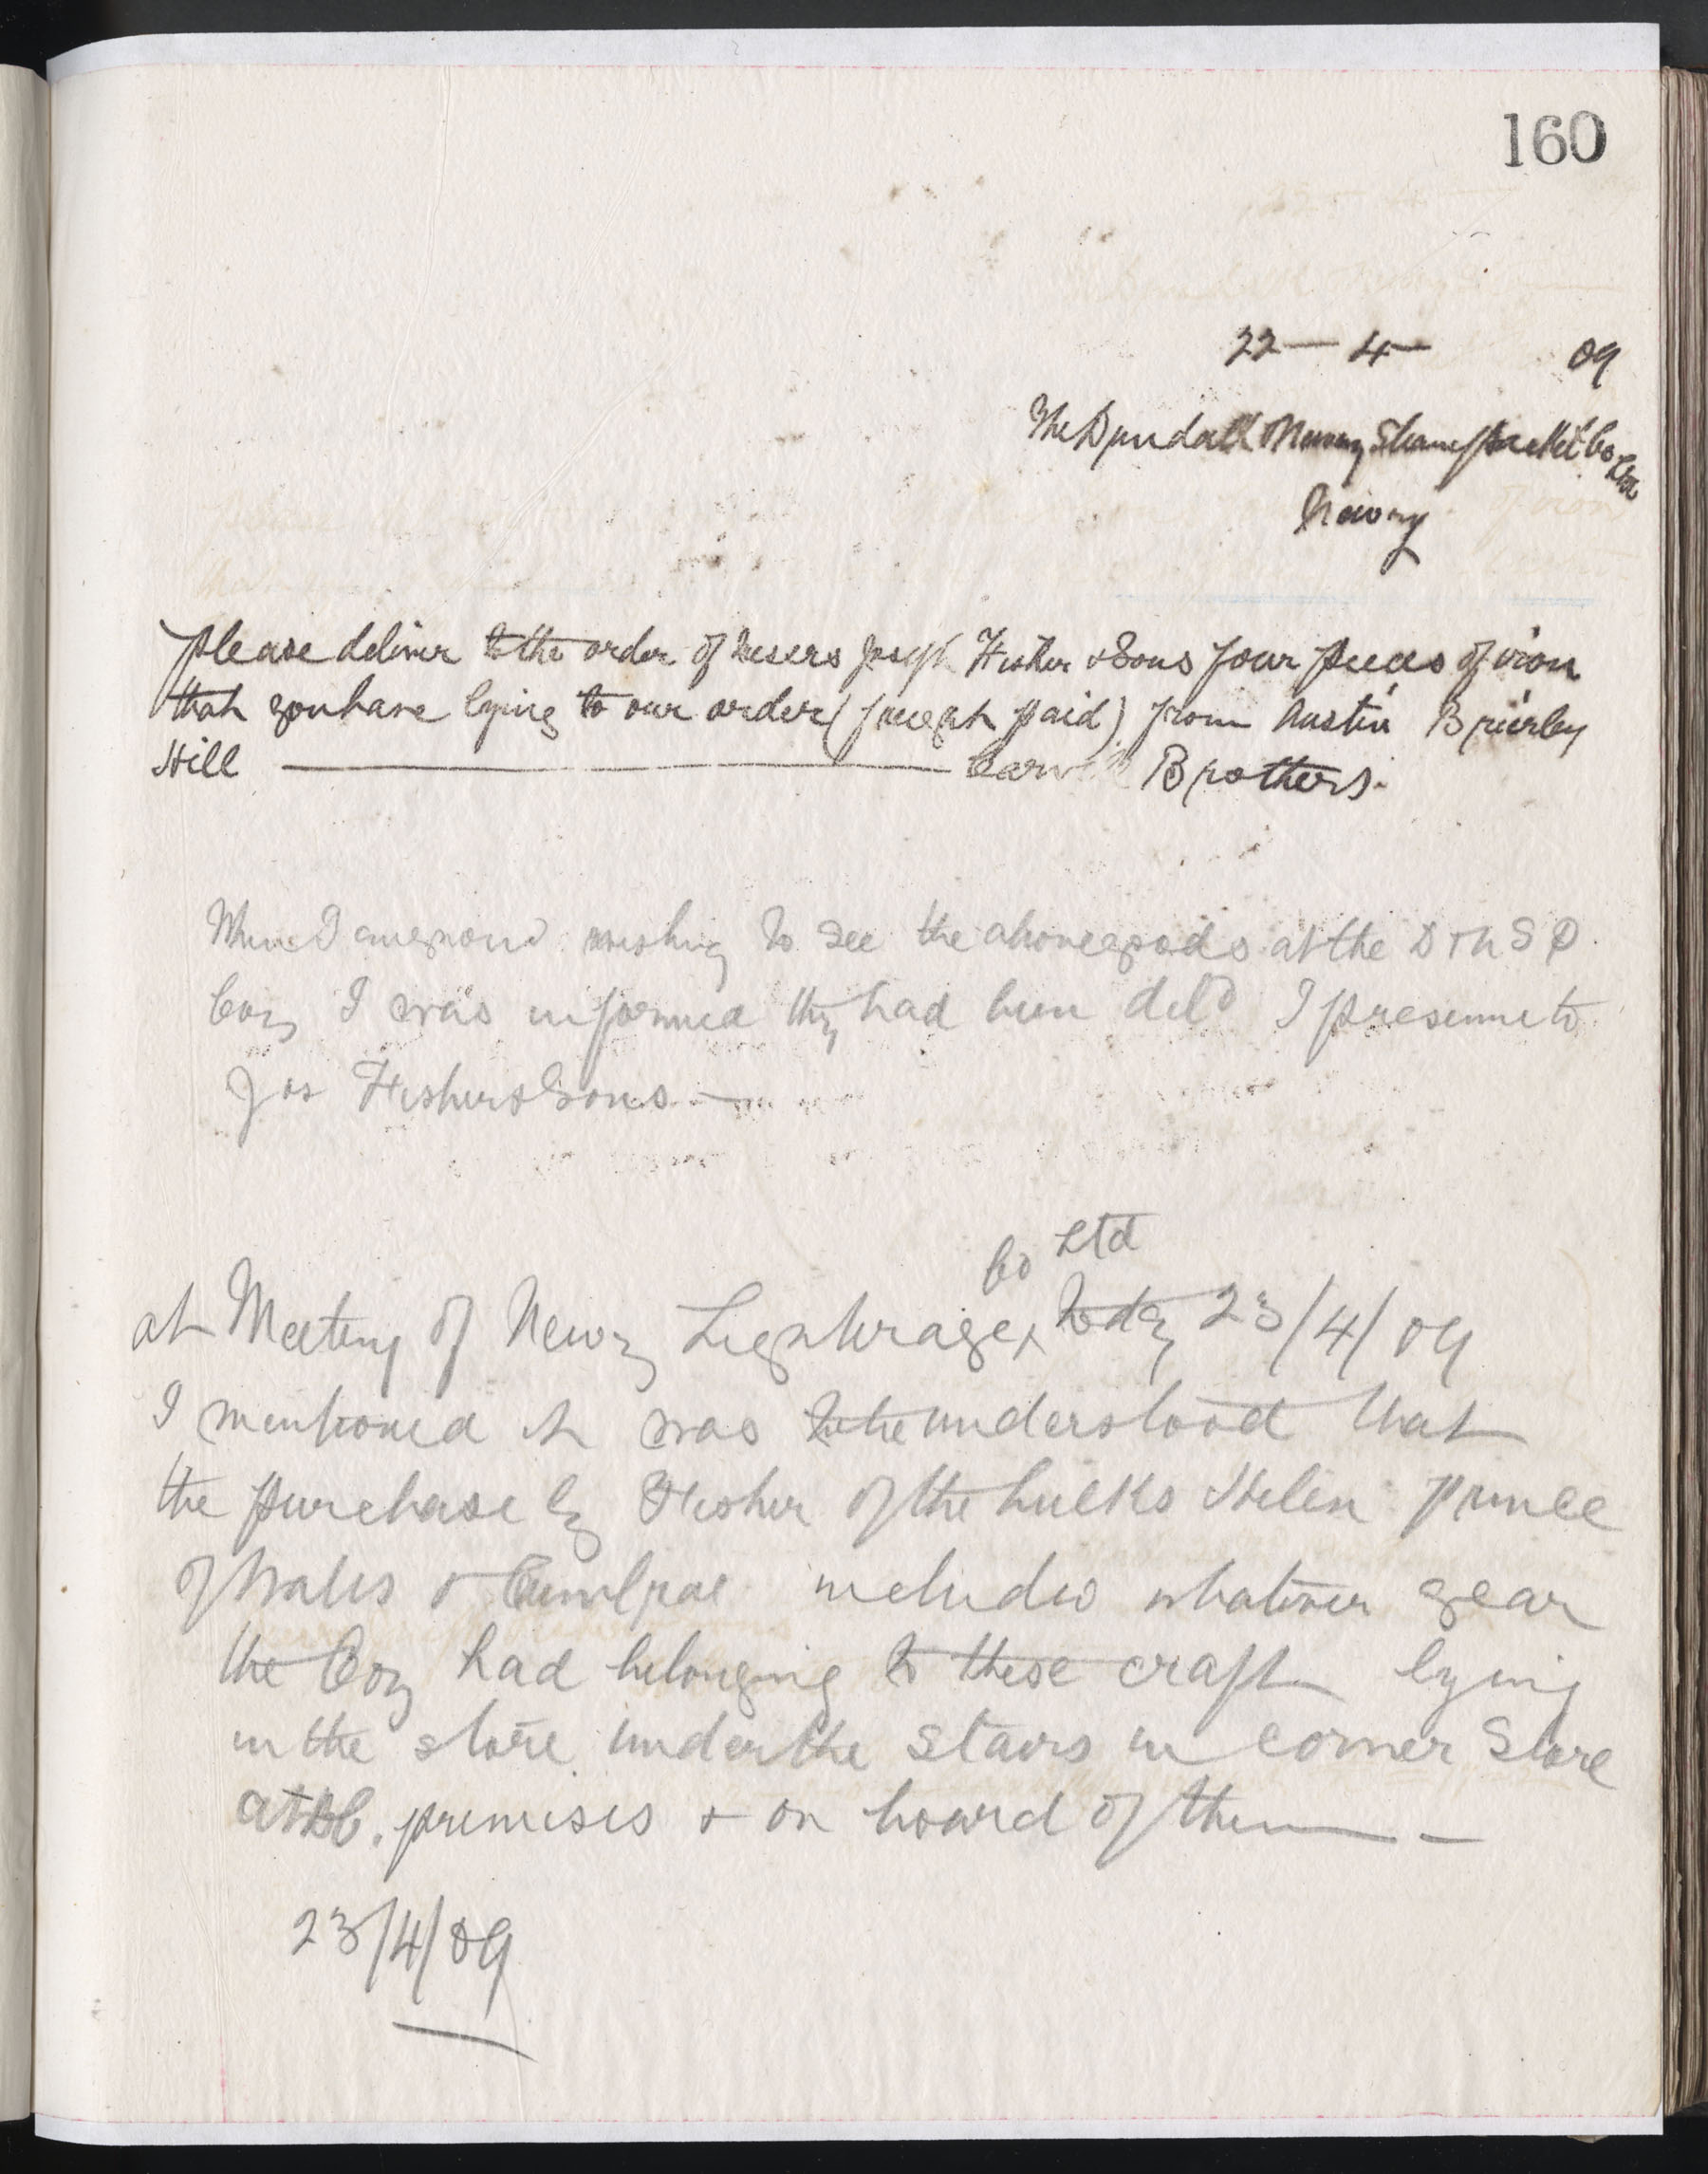 160
22 — 4 — 09
The Dundalk Newry Steampacket Co Ltd
Newry
Please deliver to the order of Messrs Joseph Fisher & Sons four pieces of iron
that you have lying to our order (freight paid) from Austin Brierley
Hill — Carvill Brothers.
When I wishing to see the above goods at the D & N S P
Coy I was informed they had been deld I presume to
Jos Fisher & Sons —
Co Ltd
at Meeting of Newry Lighterage x today 23/4/09
I mentioned it was to be understood that
the purchase by Fisher of the hulks Helen Prince
of Wales & includes whatever gear
the Coy had belonging to these craft lying
in the store under the stairs in corner Store
at premises & on board of them —
23/4/09